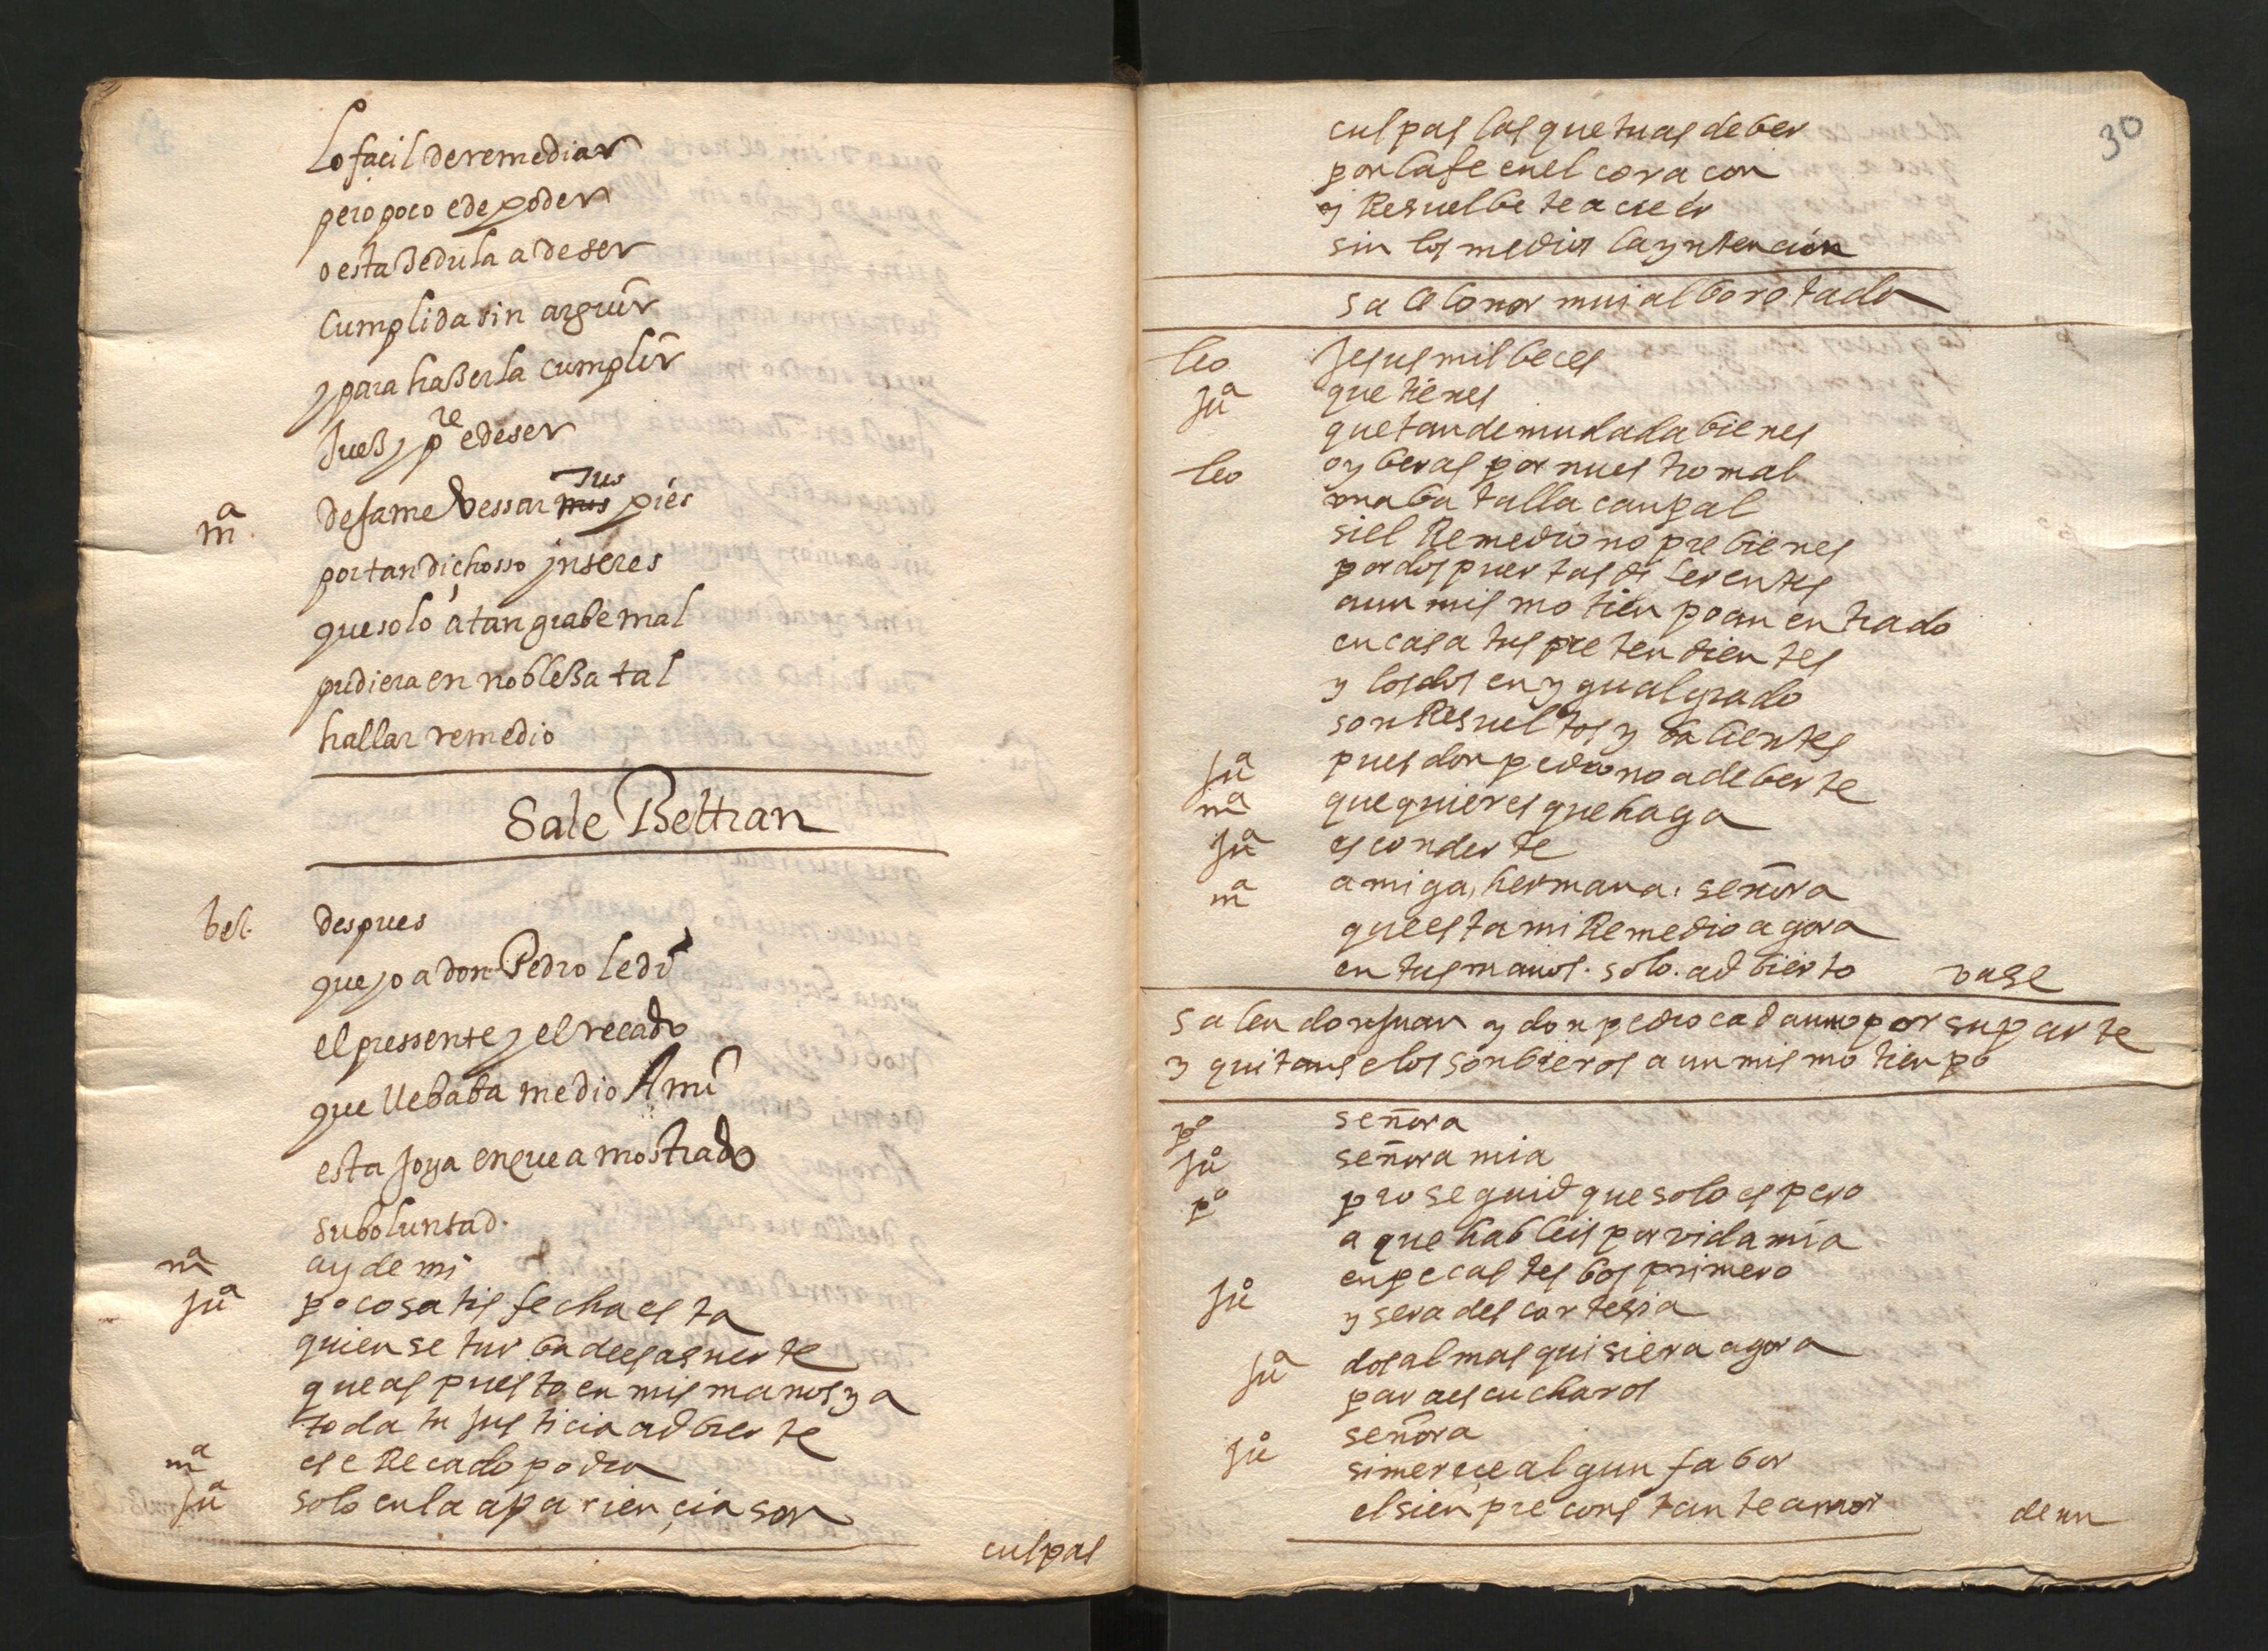 Lo facil de remediar
pero poco e de poder
o esta sedula a de ser
Cumplida sin arguir
y para haßerla cumplir
Jueß y pre e de ser
ma. desame bessar mis Tus pies
por tan dichosso jnteres
que solo a tan grabe mal
pudiera en nobleßa tal
hallar remedio
Sale Beltran
bel. despues
que jo a don Pedro le di
el pressente y el recado
que llebaba me dio A mi
esta Joya en que a mostrado
su boluntad.
ma ay de mi
Jua poco satisfecha esta
quien se turba de esa suerte
que as puesto en mis manos ya
toda tu Justicia adbierte
ma ese Recado podra
Jua solo en la apariençia son
culpas
30
culpas las que tu as de ber
por la fe en el coracon
y Resuelbete a creer
sin los medios la yntencion
sale lonor mui alborotada
leo Jesus mil beces
Jua que tienes
que tan demudada bienes
leo oy beras por nuestro mal
una batalla canpal
si el Remedio no prebienes
por dos puertas diferentes
a un mismo tienpo an entrado
en casa tus pretendientes
y los dos en ygual grado
son Resueltos y balientes
Jua pues don pedro no a de berte
ma que quieres que haga
Jua esconderte
ma amiga, hermana, señora
que esta mi Remedio agora
en tus manos. solo. adbierto vase
salen don Juan y don pedro cada uno por su parte
y quitanse los sonbreros a un mismo tienpo
po señora
Juo señora mia
po proseguid que solo espero
a que hableis por vida mia
Juo enpecastes bos primero
y sera descortesia
Jua dos almas quisiera agora
para escucharos
Juo señora
si merece algun fabor
el sienpre constante amor
de un